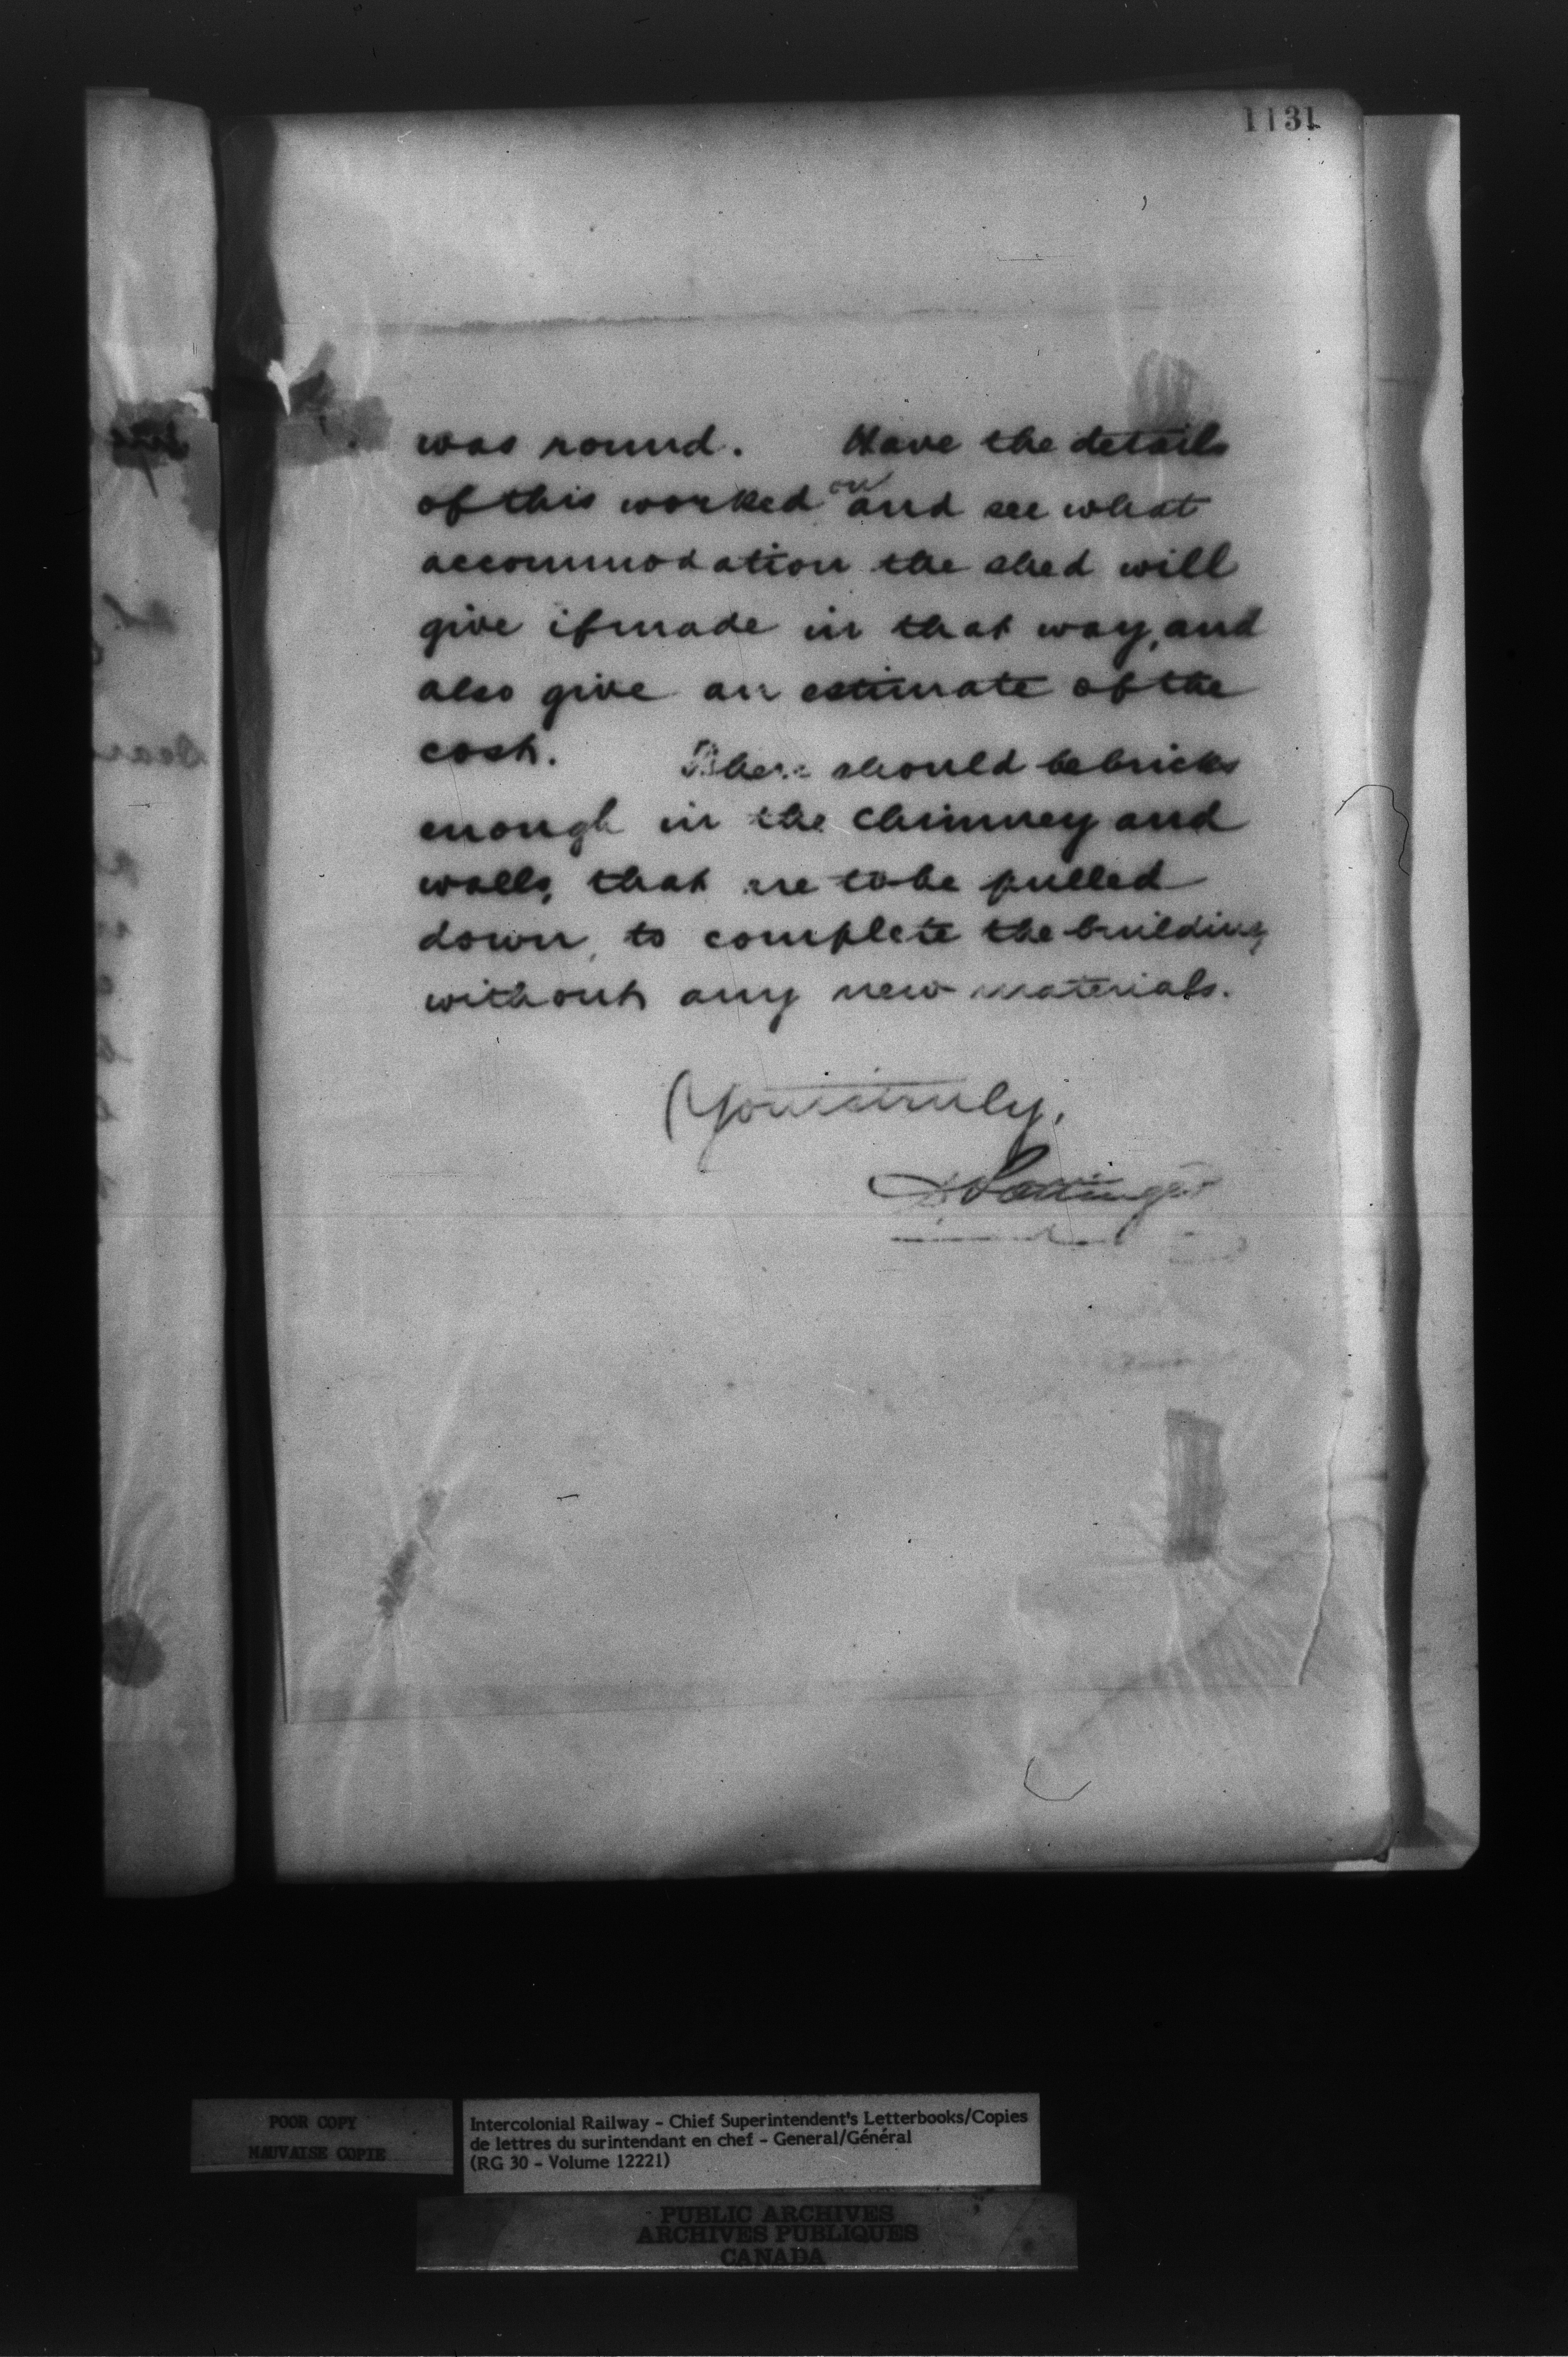 1131
was round. Have the details
of this worked out and see what
accommodation the shed will
give if made in that way, and
also give an estimate of the
cost. There should be bricks
enough in the chimney and
walls, that are to be pulled
down, to complete the building
without any new materials.
Yours truly,
D Pottinger
POOR COPY
MAUVAISE COPIE
Intercolonial Railway - Chief Superintendent's Letterbooks/Copies
de lettres du surintendant en chef - General/Général
(RG 30 - Volume 12221)
PUBLIC ARCHIVES
ARCHIVES PUBLIQUES
CANADA